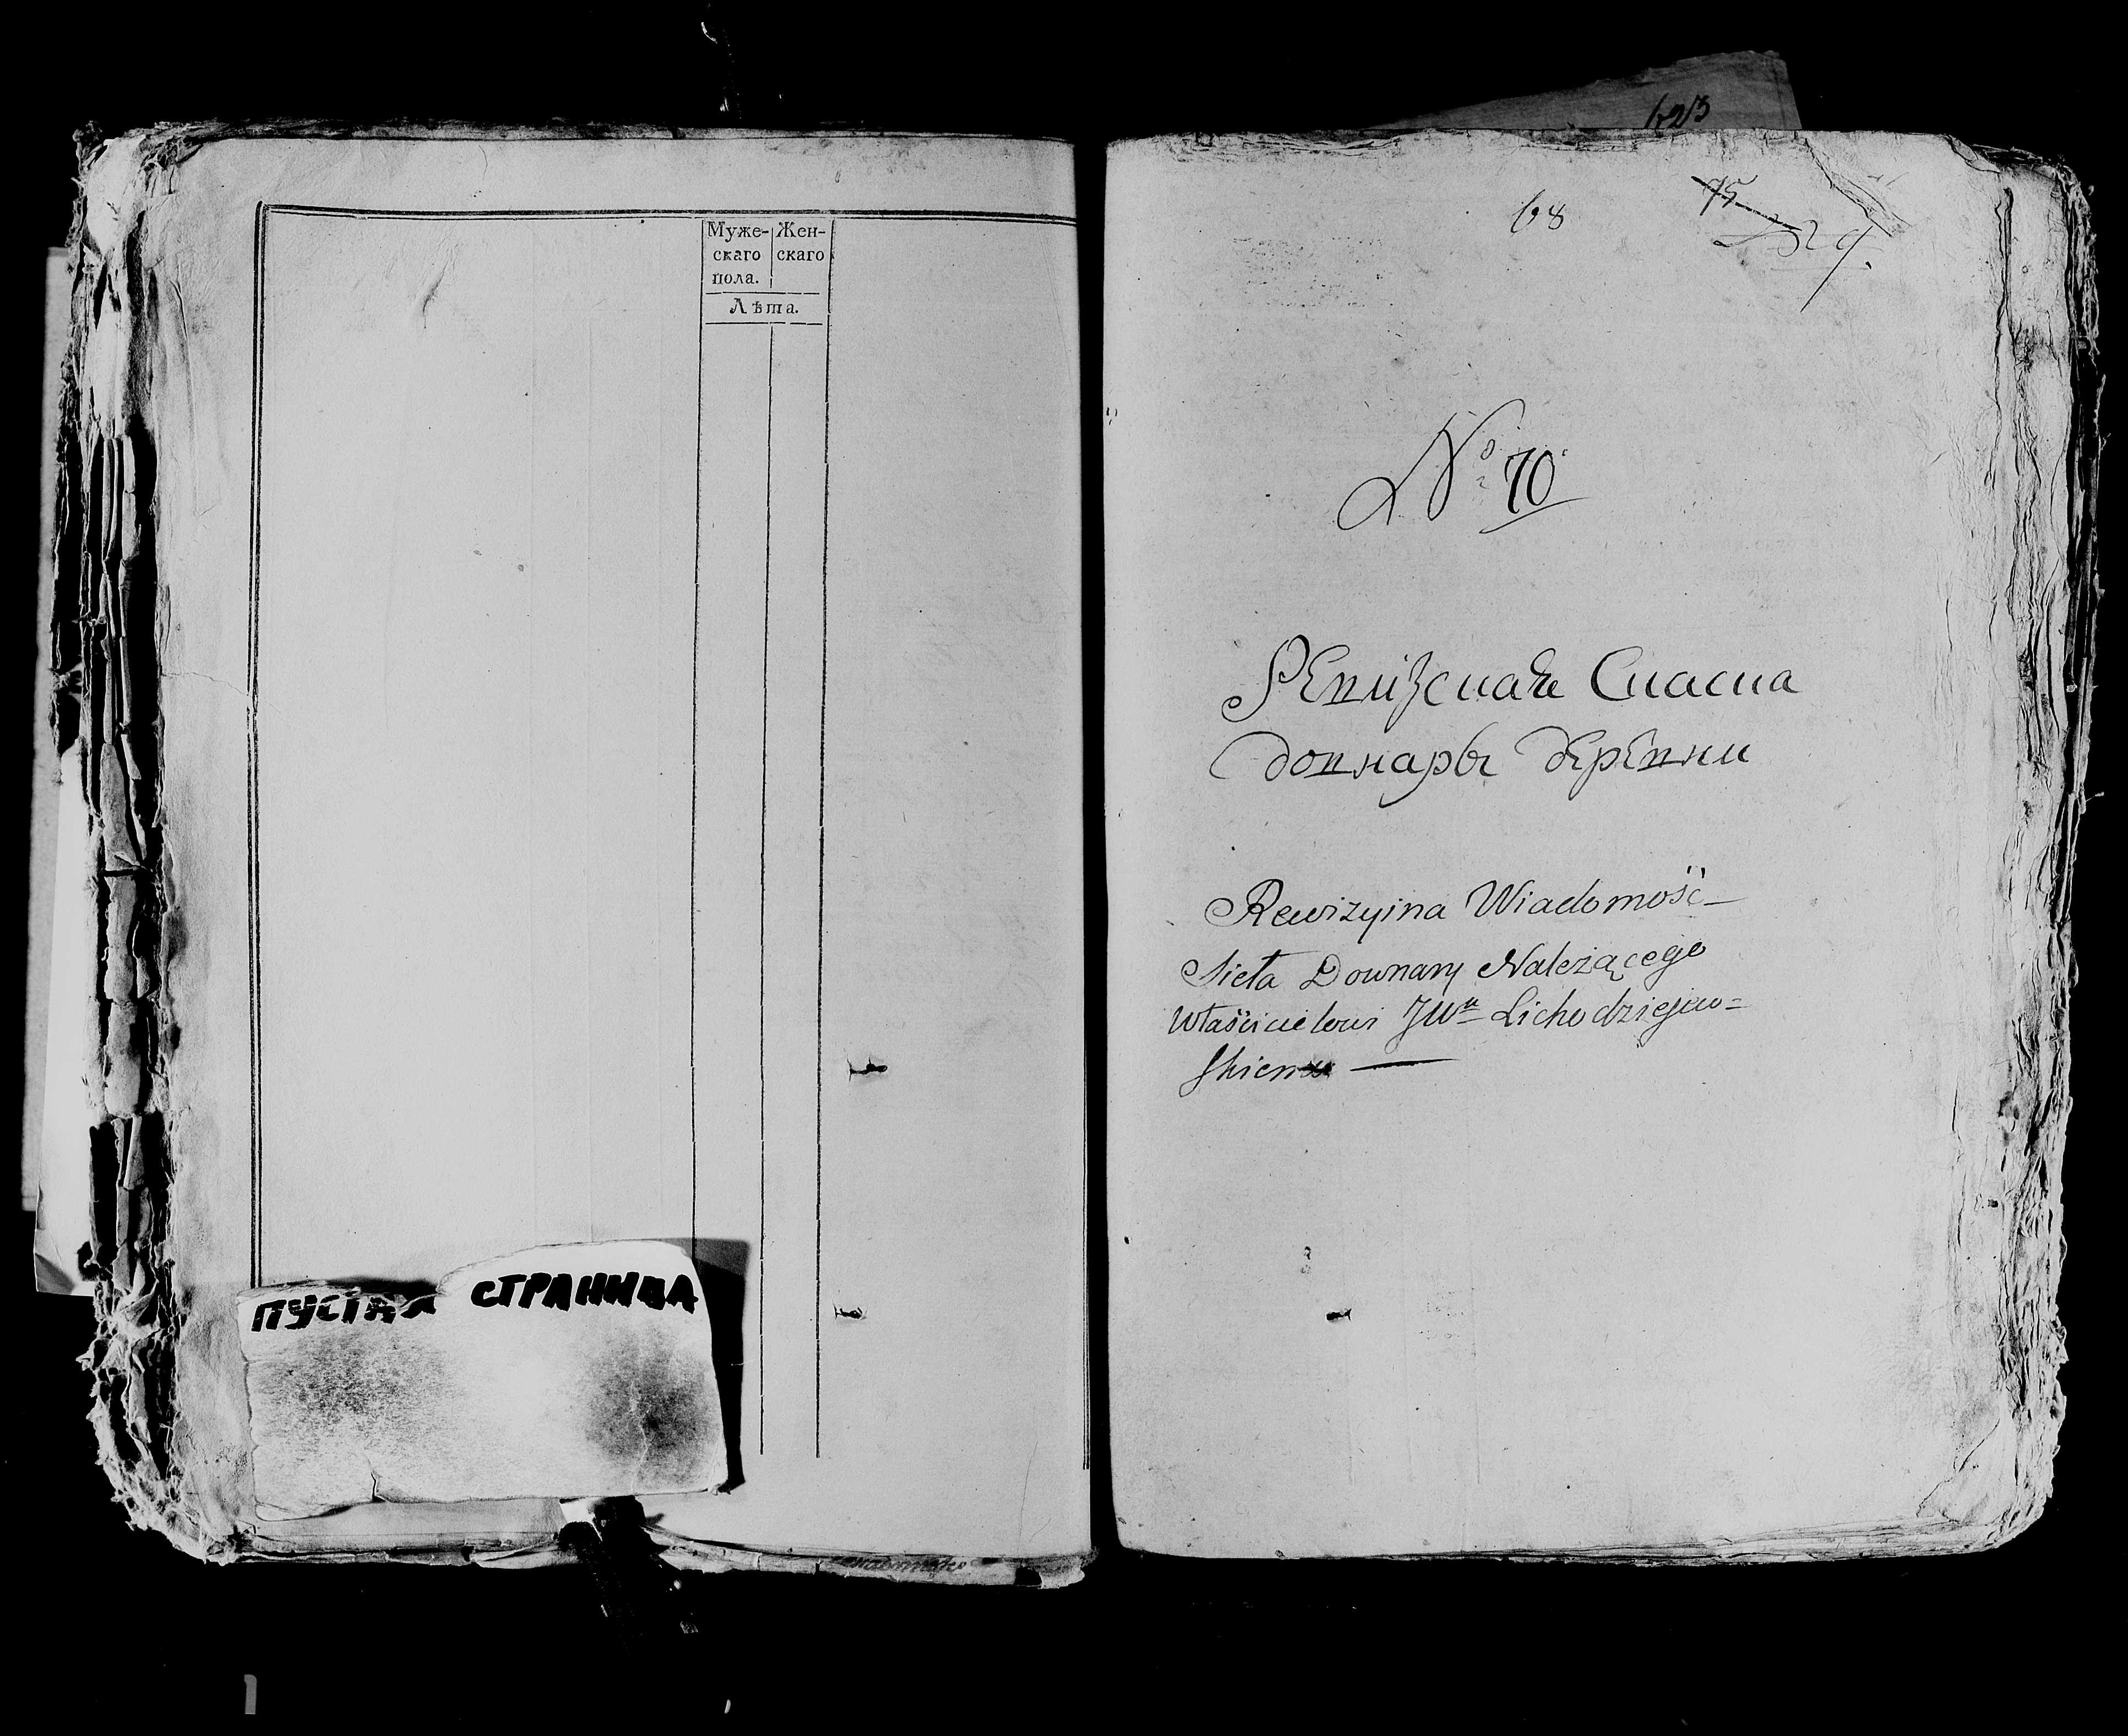 Муже- Жен-
скаго скаго
пола.
Лѣта.
ПУСТАЯ СТРАНИЦА
623
68 75
№ 70
Ревизская Сказка
Довнары деревни
Rewizyina Wiadomość
Sieła Downary Należącego
Właścicielowi JWu Lichodziejew=
skiemu